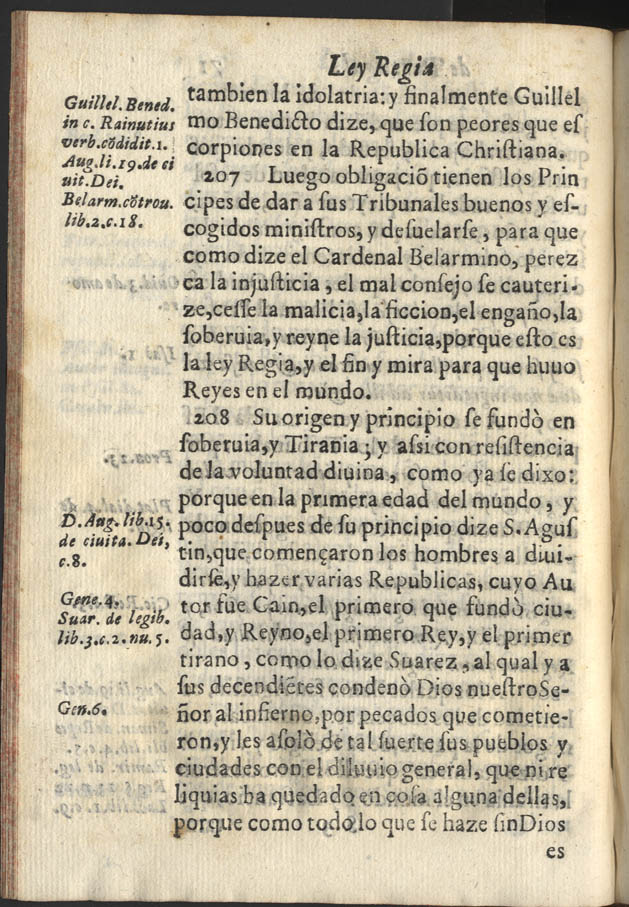 Ley Regia
Guillel. Bened.
in c. Rainutius
verb. cõdidit. 1.
Aug. li. 19. de ci
uit. Dei.
Belarm. cõtrou.
lib. 2. c. 18.
tambien la idolatria: y finalmente Guillel
mo Benedicto dize, que ſon peores que eſ
corpiones en la Republica Chriſtiana.
207 Luego obligaciõ tienen los Prin
cipes de dar a ſus Tribunales buenos y eſ-
cogidos miniſtros, y deſuelarſe, para que
como dize el Cardenal Belarmino, perez
ca la injuſticia, el mal conſejo ſe cauteri-
ze, ceſſe la malicia, la ficcion, el engaño, la
ſoberuia, y reyne la juſticia, porque eſto es
la ley Regia, y el fin y mira para que huuo
Reyes en el mundo.
208 Su origen y principio ſe fundò en
ſoberuia, y Tirania; y aſsi con reſiſtencia
de la voluntad diuina, como ya ſe dixo:
porque en la primera edad del mundo, y
D. Aug. lib. 15.
de ciuita. Dei,
c. 8.
poco deſpues de ſu principio dize S. Aguſ
tin, que començaron los hombres a diui-
dirſe, y hazer varias Republicas, cuyo Au
Gene. 4.
Suar. de legib.
lib. 3. c. 2. nu. 5.
tor fue Cain, el primero que fundò ciu-
dad, y Reyno, el primero Rey, y el primer
tirano, como lo dize Suarez, al qual y a
ſus decendiẽtes condenò Dios nueſtro Se-
Gen. 6.
ñor al infierno, por pecados que cometie-
ron, y les aſolò de tal ſuerte ſus pueblos y
ciudades con el diluuio general, que ni re
liquias ha quedado en coſa alguna dellas,
porque como todo lo que ſe haze ſin Dios
es